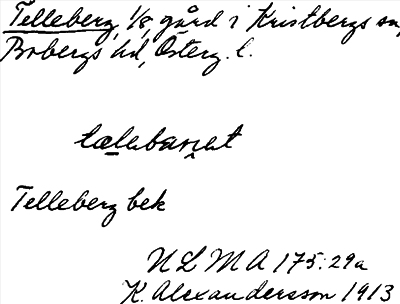 Telleberg, 1/8 gård i Kristbergs sn,
Bobergs hd, Österg. l.
Telleberg bek
ULMA 175:29a
K. Alexandersson 1913